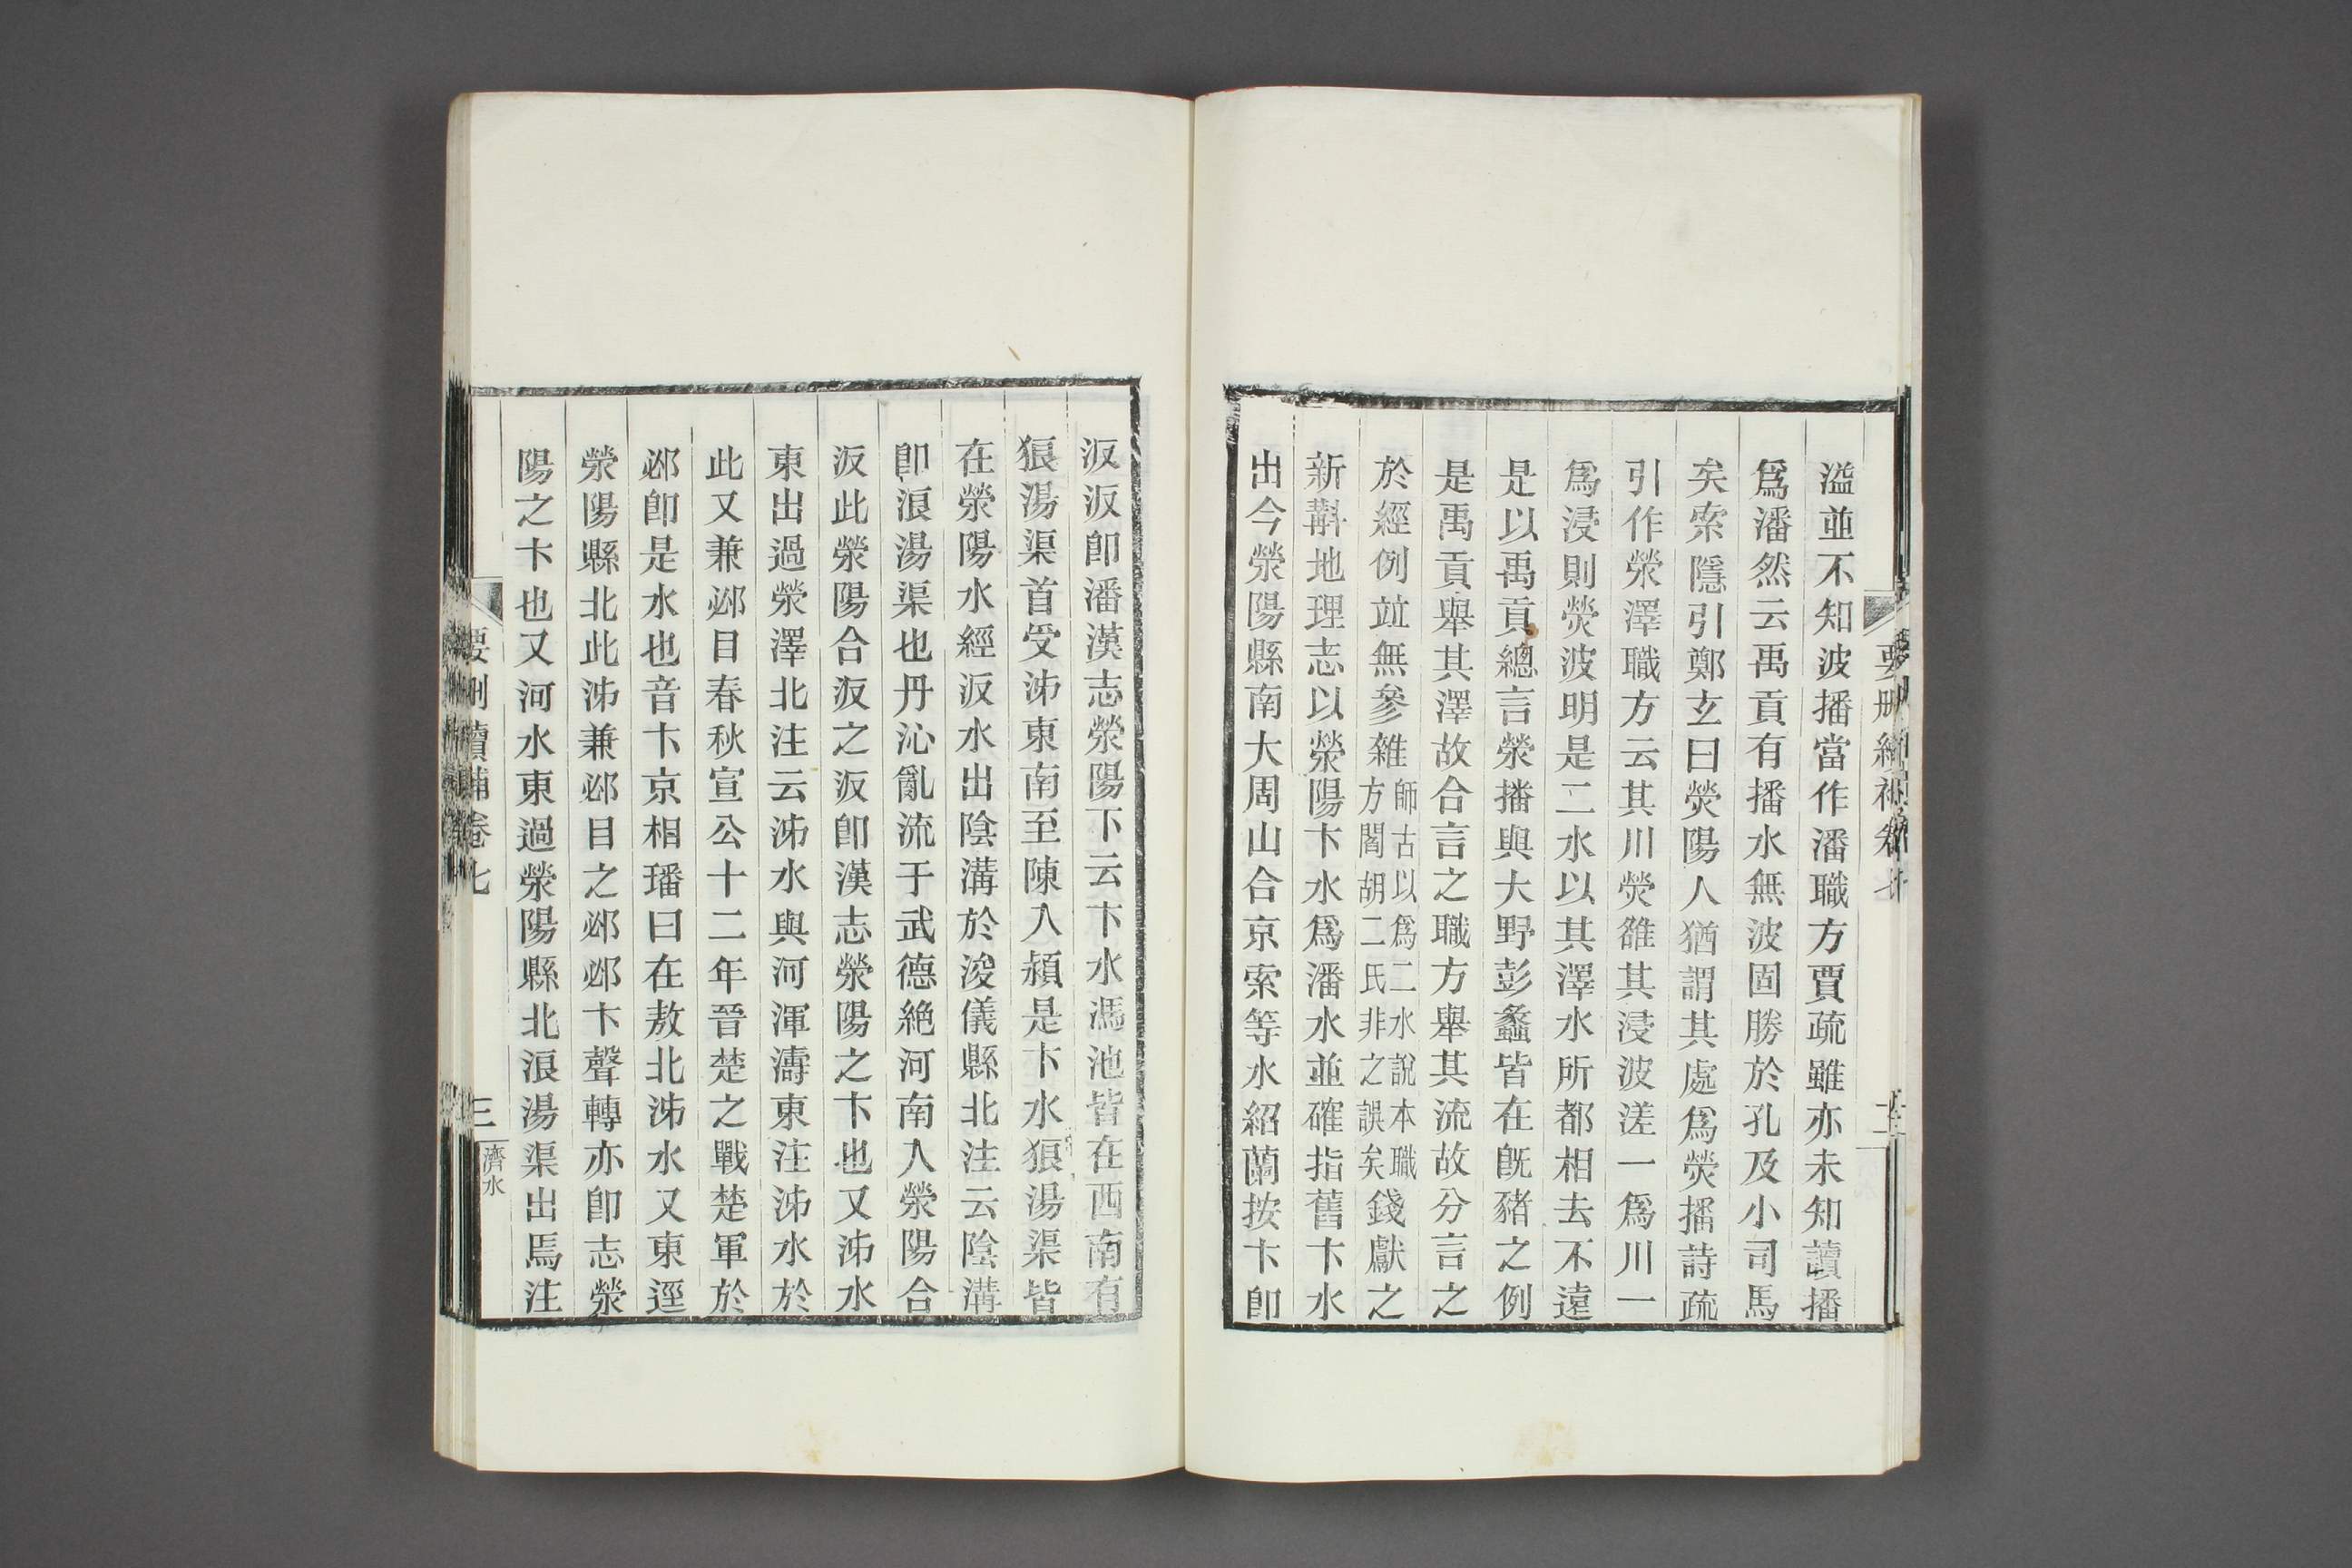 溢並不知波播當作潘職方賈疏雖亦未知讀播
爲潘然云禹貢有播水無波固勝於孔及小司馬
矣索隱引鄭玄曰熒陽人猶謂其處爲熒播詩疏
引作滎澤職方云其川熒雒其浸波溠一爲川一
爲浸則熒波明是二水以其澤水所都相去不遠
是以禹貢總言滎播與大野彭蠡皆在旣豬之例
是禹貢舉其澤故合言之職方舉其流故分言之
於經例竝無參雜師古以爲二水說本職方閻胡二氏非之誤矣錢獻之
新斠地理志以滎陽卞水爲潘水並確指舊卞水
出今滎陽縣南大周山合京索等水紹蘭按卞卽
汳汳卽潘漢志滎陽下云卞水馮池皆在西南有
狼湯渠首受泲東南至陳入潁是卞水狼湯渠皆
在滎陽水經汳水出陰溝於浚儀縣北注云陰溝
卽浪湯渠也丹沁亂流于武德絶河南入滎陽合
汳此滎陽合汳之汳卽漢志滎陽之卞也又泲水
東出過滎澤北注云泲水與河渾濤東注泲水於
此又兼邲目春秋宣公十二年晉楚之戰楚軍於
邲卽是水也音卞京相璠曰在敖北泲水又東逕
滎陽縣北此泲兼邲目之邲邲卞聲轉亦卽志滎
陽之卞也又河水東過滎陽縣北浪湯渠出焉注
要刪續補卷七
三
濟水